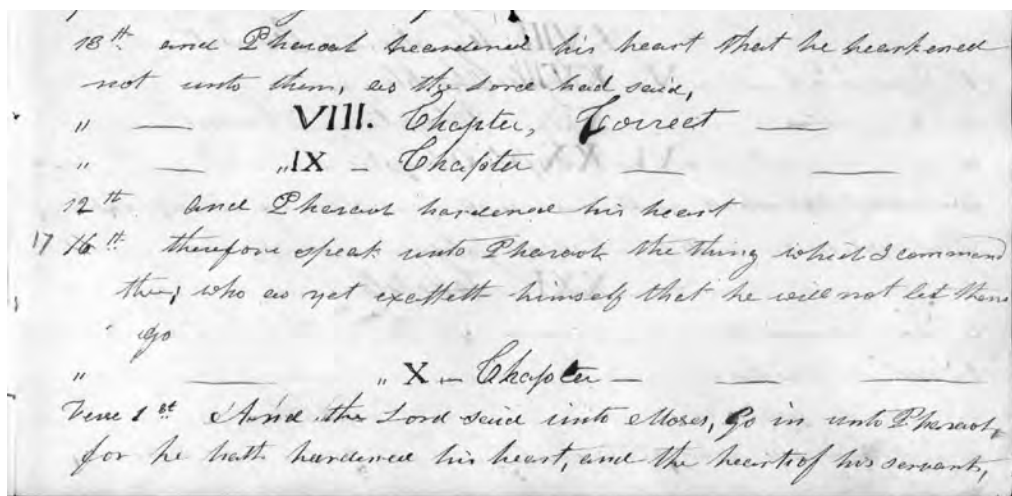 13th and Pharoah heardened his heart that he hearkened
not unto them, as the Lord had said,
" — VIII. Chapter, Correct —
" — "IX – Chapter — —
12th and Pharaoh hardened his heart
17 16th therefore speak unto Pharaoh the thing which I command
thee; who as yet exalteth himself that he will not let them
go
" — " X – Chapter — — —
Verse 1st And the Lord said unto Moses, Go in unto Pharaoh,
for he hath hardened his heart, and the hearts of his servants,